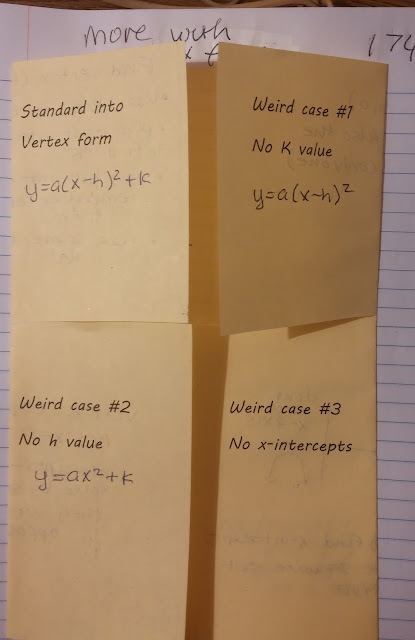 more with
174
Standard into
Vertex form
y=a(x-h)²+k
Weird case #1
No K value
y=a(x-h)²
Weird case #2
No h value
y=ax²+k
Weird case #3
No x-intercepts